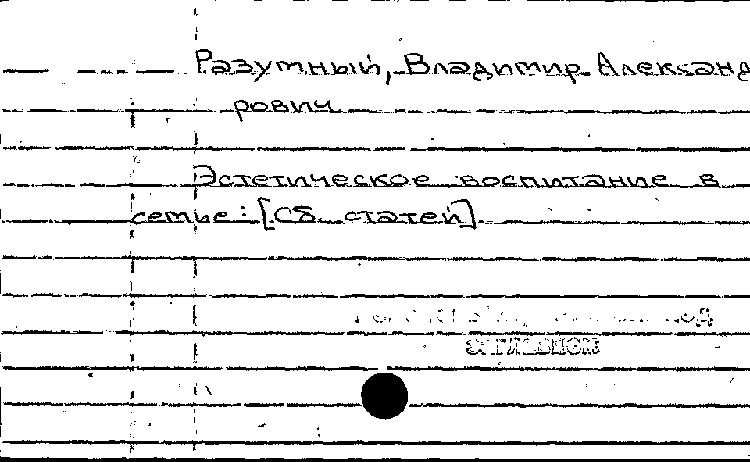 Разумный, Владимир Александ
рович
Эстетическое воспитание в
семье: [Сб. статей]
заглавием